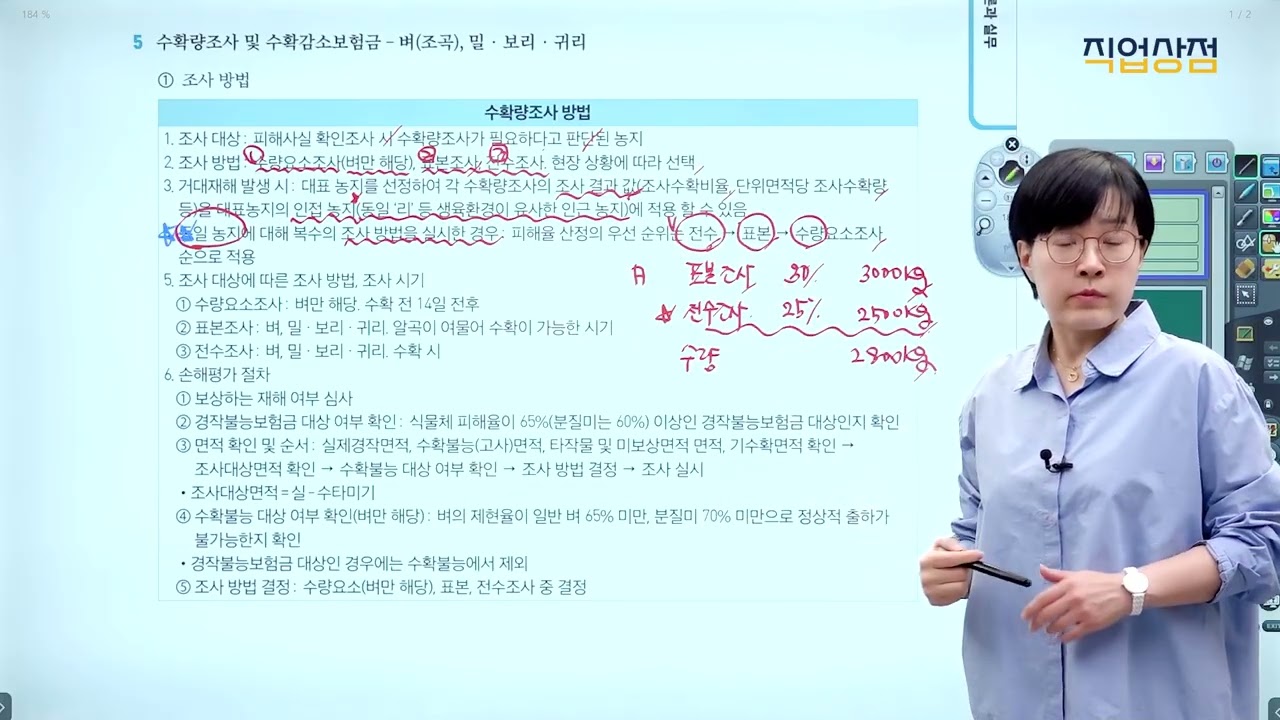 184 %
1 / 2
직업상점
5 수확량조사 및 수확감소보험금 – 벼(조곡), 밀 · 보리 · 귀리
① 조사 방법
수확량조사 방법
1. 조사 대상 : 피해사실 확인조사 시 수확량조사가 필요하다고 판단된 농지
2. 조사 방법 : 수량요소조사(벼만 해당), 표본조사, 전수조사, 현장 상황에 따라 선택
① ② ③
3. 거대재해 발생 시 : 대표 농지를 선정하여 각 수확량조사의 조사 결과 값(조사수확비율, 단위면적당 조사수확량
등)을 대표농지의 인접 농지(동일 ‘리’ 등 생육환경이 유사한 인근 농지)에 적용 할 수 있음
동일 농지에 대해 복수의 조사 방법을 실시한 경우 : 피해율 산정의 우선 순위는 전수 → 표본 → 수량요소조사
순으로 적용
A 표본조사 30% 3000kg
전수조사 25% 2500kg
수량 2800kg
5. 조사 대상에 따른 조사 방법, 조사 시기
① 수량요소조사 : 벼만 해당. 수확 전 14일 전후
② 표본조사 : 벼, 밀 · 보리 · 귀리. 알곡이 여물어 수확이 가능한 시기
③ 전수조사 : 벼, 밀 · 보리 · 귀리. 수확 시
6. 손해평가 절차
① 보상하는 재해 여부 심사
② 경작불능보험금 대상 여부 확인 : 식물체 피해율이 65%(분질미는 60%) 이상인 경작불능보험금 대상인지 확인
③ 면적 확인 및 순서 : 실제경작면적, 수확불능(고사)면적, 타작물 및 미보상면적 면적, 기수확면적 확인 →
조사대상면적 확인 → 수확불능 대상 여부 확인 → 조사 방법 결정 → 조사 실시
• 조사대상면적 = 실 – 수타미기
④ 수확불능 대상 여부 확인(벼만 해당) : 벼의 제현율이 일반 벼 65% 미만, 분질미 70% 미만으로 정상적 출하가
불가능한지 확인
• 경작불능보험금 대상인 경우에는 수확불능에서 제외
⑤ 조사 방법 결정 : 수량요소(벼만 해당), 표본, 전수조사 중 결정